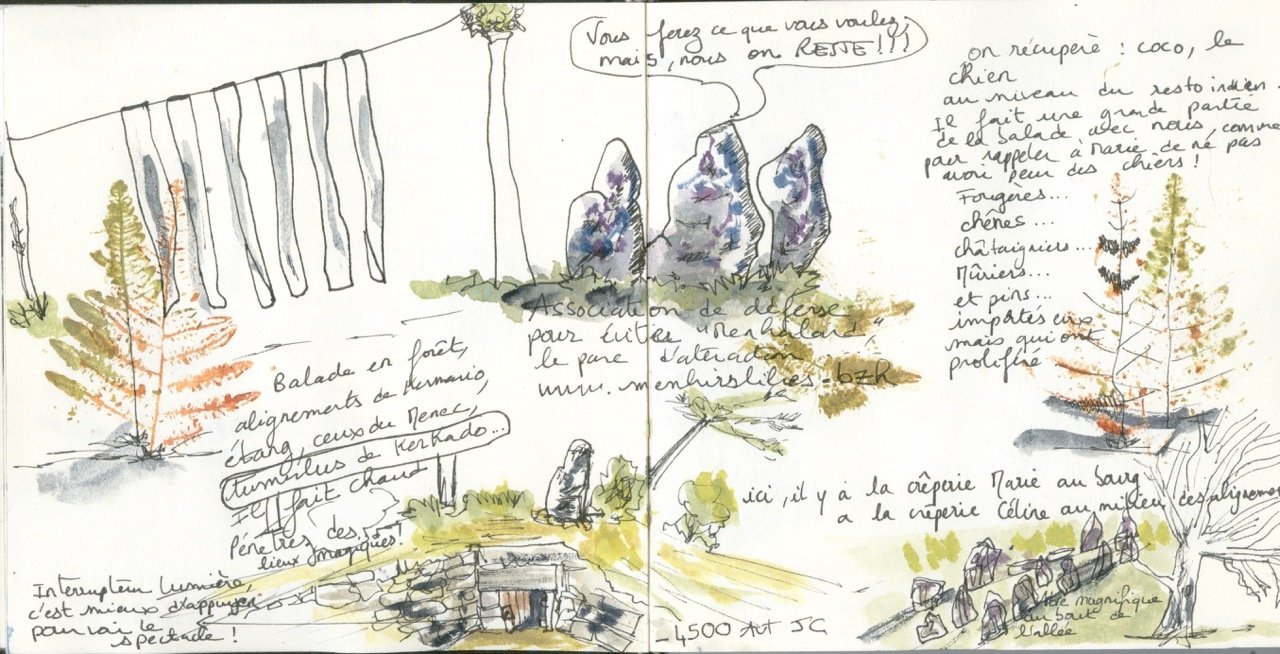 Vous ferez ce que vous voulez,
mais, nous on RESTE !!!
on récupère : coco, le
chien
au niveau du resto indien.
Il fait une grande partie
de la balade avec nous, comme
pour rappeler à Marie de ne pas
avoir peur des chiens !
Fougères...
chênes...
châtaigniers...
Mûriers...
et pins...
importés eux
mais qui ont
proliféré
Association de défense
pour éviter "Menhirland",
le parc d'atraction
www.menhirslibres.bzh
Balade en forêt,
alignements de Kermario,
étang, ceux du Menec,
tumulus de Kerkado...
Il fait chaud
Pénétrer des
lieux magiques !
Interrupteur lumière
c'est mieux d'appuyer
pour voir le
spectacle !
-4500 Avt JC
ici, il y a la crêperie Marie au bourg
a la crêperie Céline au milieu des alignements
magnifique
au bout de
l'allée